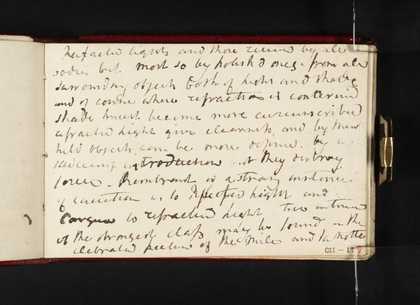 Refracted lights and those received by all
bodies but most so by polish'd ones from all
surrounding objects both of light and shade
and of course where refraction is concerned
shade must become more circumscribed
refracted lights give clearness, and by them
held objects can be more defined by
introduction of they destroy
force. Rembrandt is a strong instance
of caution as to reflected lights and
Corregio to refracted light two
of the strongest class may be found in the
celebrated picture of the Mill and the Notte
CII - 1